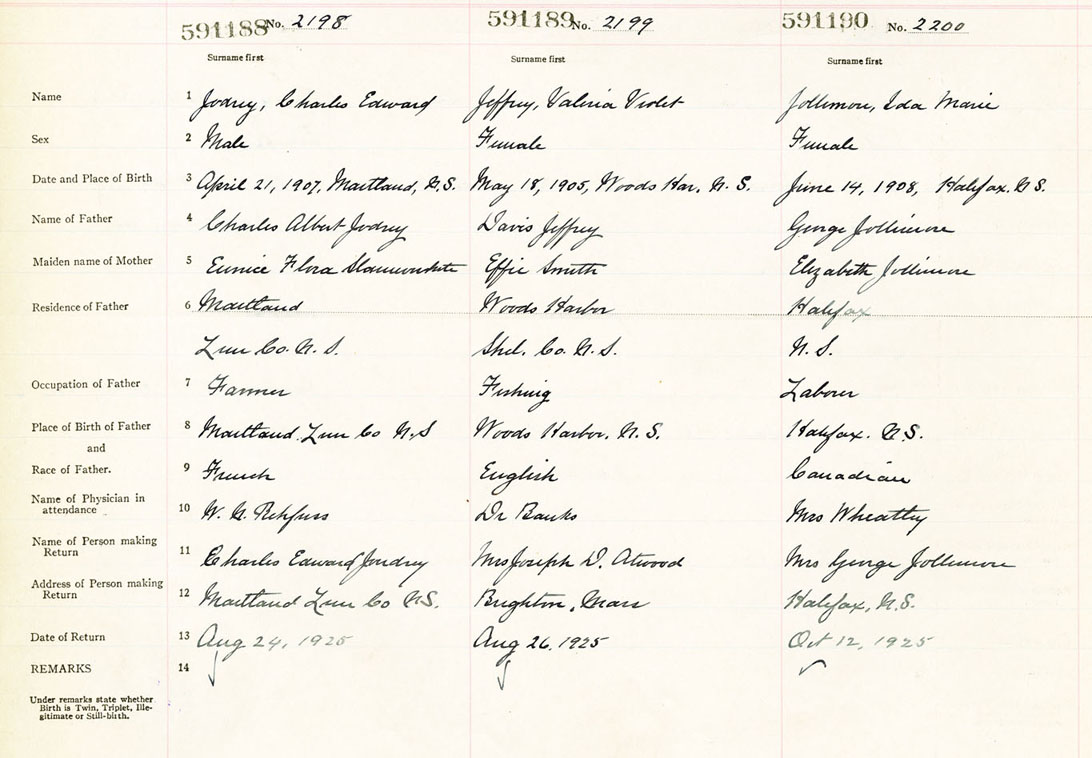 591188 No. 2198 591189 No. 2199 591190 No. 2200
Surname first Surname first Surname first
Name 1 Jodrey, Charles Edward Jeffrey, Valeria Violet Jollimore, Ida Marie
Sex 2 Male Female Female
Date and Place of Birth 3 April 21, 1907, Maitland, N.S. May 18, 1905, Woods Har. N. S. June 14, 1908, Halifax. N.S.
Name of Father 4 Charles Albert Jodrey Davis Jeffrey George Jollimore
Maiden name of Mother 5 Eunice Flora Slaunwhite Effie Smith Elizabeth Jollimore
Residence of Father 6 Maitland Woods Harbor Halifax
Lun Co. N. S. Shel. Co. N. S. N. S.
Occupation of Father 7 Farmer Fishing Laborer
Place of Birth of Father 8 Maitland. Lun Co N.S Woods Harbor. N. S. Halifax. N.S.
and
Race of Father. 9 French English Canadian
Name of Physician in
attendance 10 W. N. Rehfuss Dr Banks Mrs Wheatley
Name of Person making
Return 11 Charles Edward Joudrey Mrs Joseph D. Atwood Mrs George Jollimore
Address of Person making
Return 12 Maitland Lun Co N.S. Brighton, Mass Halifax, N.S.
Date of Return 13 Aug 24, 1925 Aug 26, 1925 Oct 12, 1925
REMARKS 14
Under remarks state whether
Birth is Twin, Triplet, Ille-
gitimate or Still-birth.